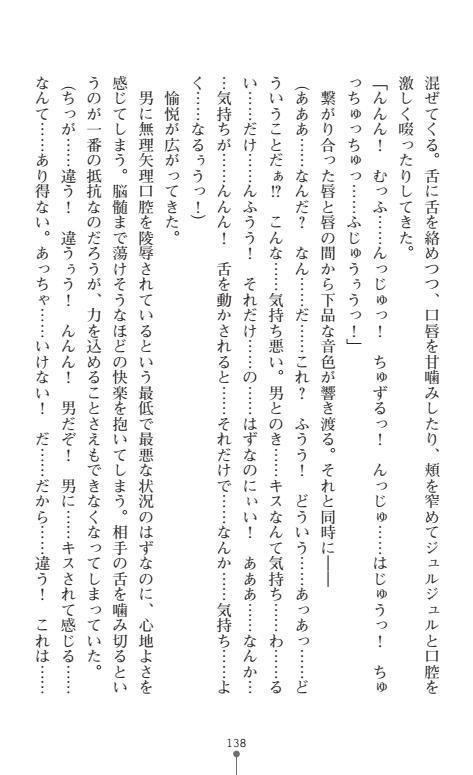 混ぜてくる。舌に舌を絡めつつ、口唇を甘噛みしたり、頬を窄めてジュルジュルと口腔を
激しく啜ったりしてきた。
「んんん！　むっふ……んっじゅっ！　ちゅずるっ！　んっじゅ……はじゅうっ！　ちゅ
っちゅっちゅっ……ふじゅうぅうっ！」
　繋がり合った唇と唇の間から下品な音色が響き渡る。それと同時に――
（あああ……なんだ？　なん……だ……これ？　ふうう！　どういう……あっあっ……ど
ういうことだぁ!?　こんな……気持ち悪い。男とのき……キスなんて気持ち……わ……る
い……だけ……んふうう！　それだけ……の……はずなのにぃい！　あああ……なんか…
…気持ちが……んんん！　舌を動かされると……それだけで……なんか……気持ち……よ
く……なるぅうっ！）
　愉悦が広がってきた。
　男に無理矢理口腔を陵辱されているという最低で最悪な状況のはずなのに、心地よさを
感じてしまう。脳髄まで蕩けそうなほどの快楽を抱いてしまう。相手の舌を噛み切るとい
うのが一番の抵抗なのだろうが、力を込めることさえもできなくなってしまっていた。
（ちっが……違う！　違うぅう！　んんん！　男だぞ！　男に……キスされて感じる……
なんて……あり得ない。あっちゃ……いけない！　だ……だから……違う！　これは……
138